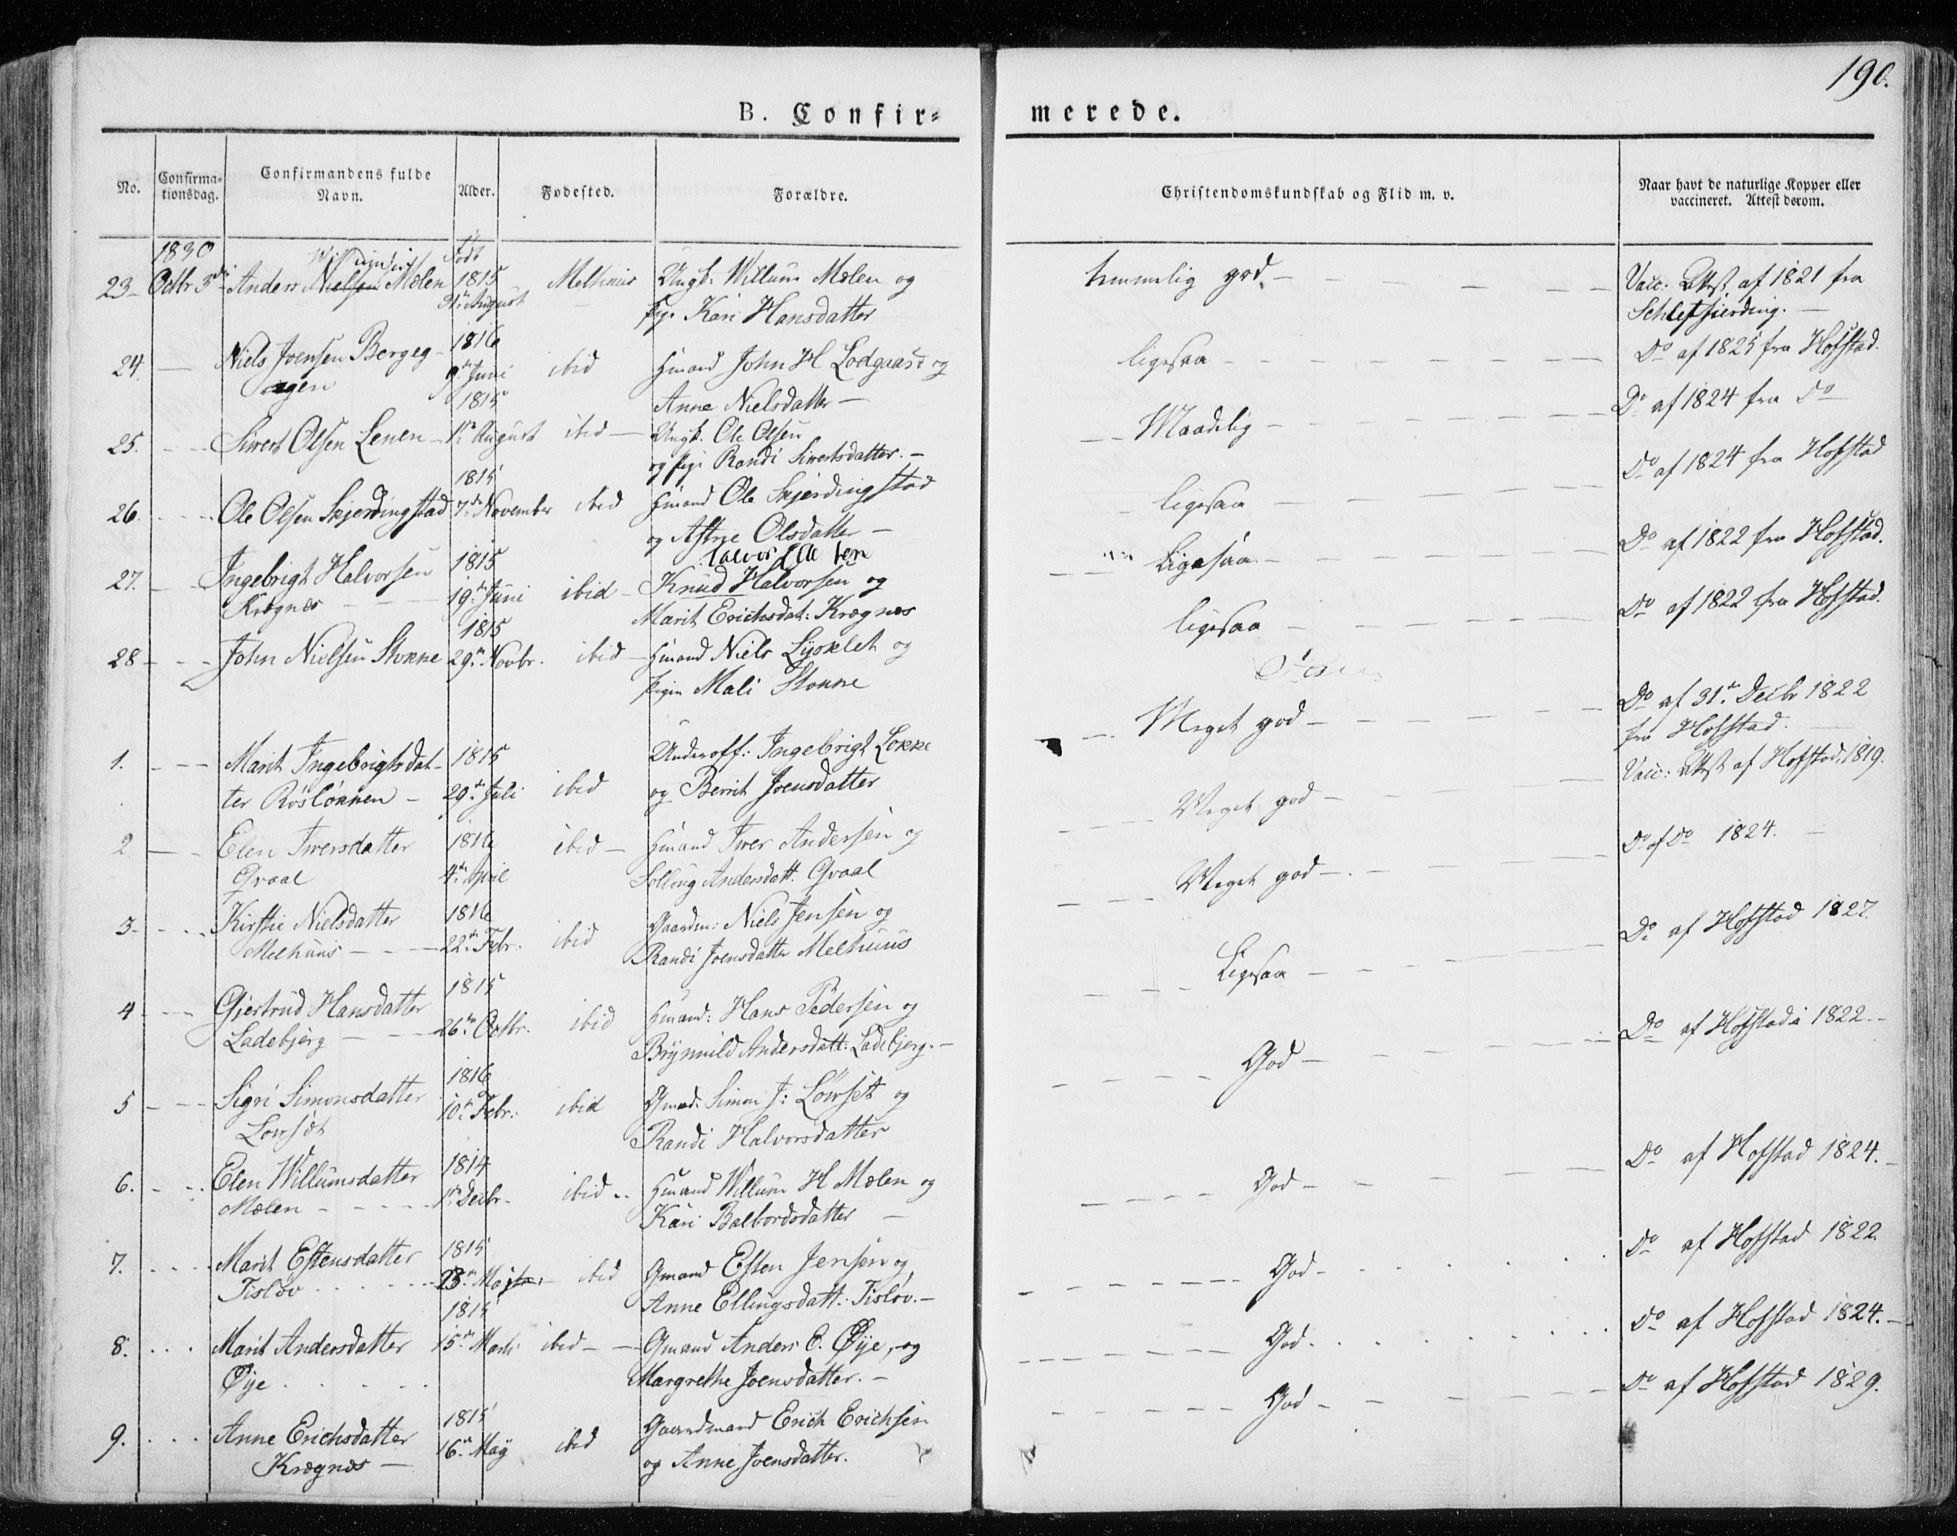 190.
B. Confir-
merede.
No. Confirma-tionsdag. Confirmandens fulde Navn. Alder. Fødested. Forældre. Christendomskundskab og Flid m. v. Naar havt de naturlige Kopper eller vaccineret. Attest derom.
1830 Født
23 Octbr 3die Anders Nielsen Mælen 1815 Melhuus Ungk: Willum Mælen og temmelig god Vacc: Attst af 1821 fra
31te August Pige Kari Hansdatter
24. Niels Joensen Bergeg- 1816 ibid Hmand John H Lodgaard og ligesaa Do af 1825 fra Hofstad.
9de Juni Anne Nielsdatter
25. Siwert Olsen Lenen 1815 1te August ibid Ungk. Ole Olsen Maadelig Do af 1824 fra Do
og Pige Randi Siwertsdatter.
26. Ole Olsen Skjerdingstad 1815 7de November ibid Hmand Ole Skjerdingstad ligesaa Do af 1824 fra Hofstad
og Astrie Olsdatter
27. Ingebrigt Halvorsen 1815 ibid Knud Halvorsen og Ligesaa Do af 1822 fra Hofstad.
Krægnæs 19de Juni Marit Erichsdat: Krægnæs
28 John Nielsen Stokne 1815 29de Novbr. ibid Hmand Niels Lysklet og ligesaa Do af 1822 fra Hofstad.
Pigen Mali Stokne
1. Marit Ingebrigtsdat- 1815 Underoff: Ingebrigt Løkke Meget god Do af 31te Decbr 1822
ter Røsløkken 29de Juli ibid og Berrit Joensdatter fra Hofstad.
2 Elen Iwersdatter 1816 ibid Hmand Iwer Andersen og Meget god Vacc: Attst af Hofstad 1819.
Qvaal 4de April Solluug Andersdatt. Qvaal
3. Kirstie Nielsdatter 1816 Gaardm: Niels Jensen og Meget god Do af Do 1824.
Melhuus 22de Febr: ibid Randi Joensdatter Melhuus
4 Gjertrud Hansdatter 1815 Hmand: Hans Pedersen og Ligesaa Do af Hofstad 1827.
Ladebjerg 26de Octbr. ibid Brynnild Andersdatt: Ladebjerg.
5 Sigri Simonsdatter 1816 Gmad: Simon J: Løwset og God Do af Hofstad i 1822.
Løwset 10de Febr: ibid Randi Halvorsdatter
6. Elen Willumsdatter 1814 Hmand Willum H Mælen og God Do af Hofstad 1824.
Mælen 1te Decbr. ibid Kari Balbordsdatter
7. Marit Estensdatter 1815 Gmand Esten Jensen og God Do af Hofstad 1822.
Tisløv 23de ibid Anne Ellingsdatt: Tisløv.
8. Marit Andersdatter 1815 15de Marti ibid Gmand Anders E. Øye, og God Do af Hofstad 1824.
Øye Margrethe Joensdatter.
9. Anne Erichsdatter 1815 Gaardmand Erich Erichsen God Do af Hofstad 1829.
Krægnæs 16de May ibid og Anne Joensdatter.